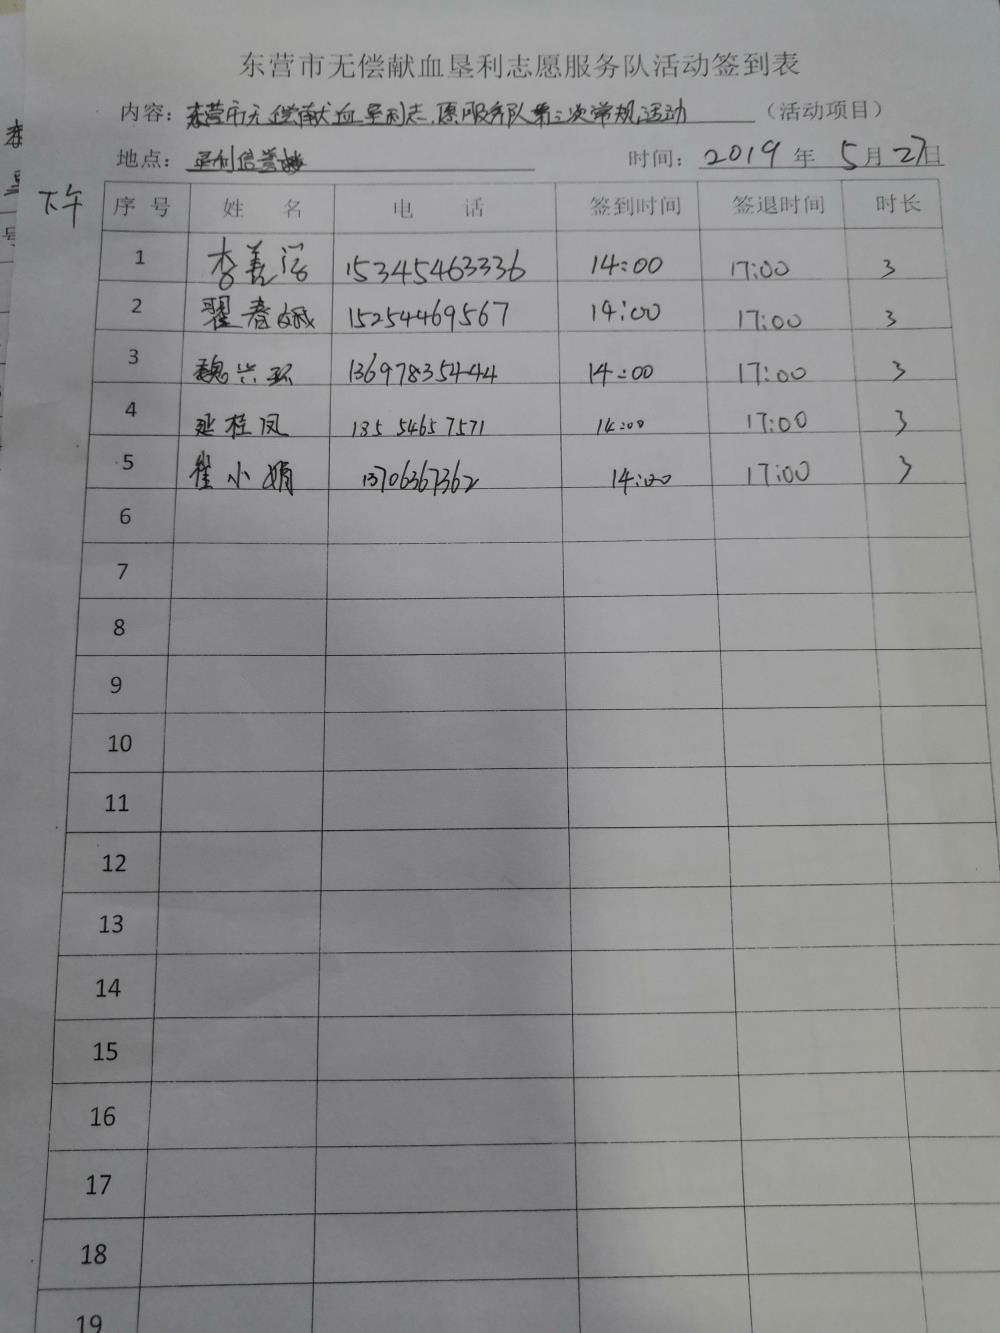 东营市无偿献血垦利志愿服务队活动签到表
内容：东营市无偿献血垦利志愿服务队第三次常规活动（活动项目）
地点：垦利信誉楼 时间：2019年5月27日
下午
序号 姓名 电话 签到时间 签退时间 时长
1 李美 15345463336 14:00 17:00 3
2 翟春 15254469567 14:00 17:00 3
3 魏兴环 13697835444 14:00 17:00 3
4 延桂凤 13554657571 14:00 17:00 3
5 崔小娟 13706367362 14:00 17:00 3
6
7
8
9
10
11
12
13
14
15
16
17
18
19